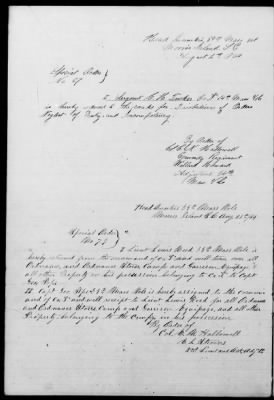 Head Quarters 54th Mass Vol
Morris Island S.C.
August 2d 1864
Special Order
No 67
2 Sergeant
is hereby reduced to the ranks for Disobedience of Orders
Neglect of Duty and Incompetency
By Order of
Col E N Hallowell
Commdg Regiment
Willard Howard
Adjutant 54th
Mass Vol
Head Quarters 54th Mass Vols
Morris Island S.C. Aug 25th /64
Special Order
No 75
I Lieut Lewis Reed 54th Mass Vols is
hereby relieved from the command of Co and will turn over all
Ordnance, and Ordnance Stores Camp and Garrison Equipage, &
all other Property in his possession belonging to Co to Capt
Geo Pope
II Capt Geo Pope 54th Mass Vols is hereby assigned to the command
of Co and will receipt to Lieut Lewis Reed for all Ordnance
and Ordnance Stores Camp and Garrison Equipage, and all other
Property belonging to the Company in his possession
By Order of
Col. E. N. Hallowell
2nd Lieut and Act Adjt